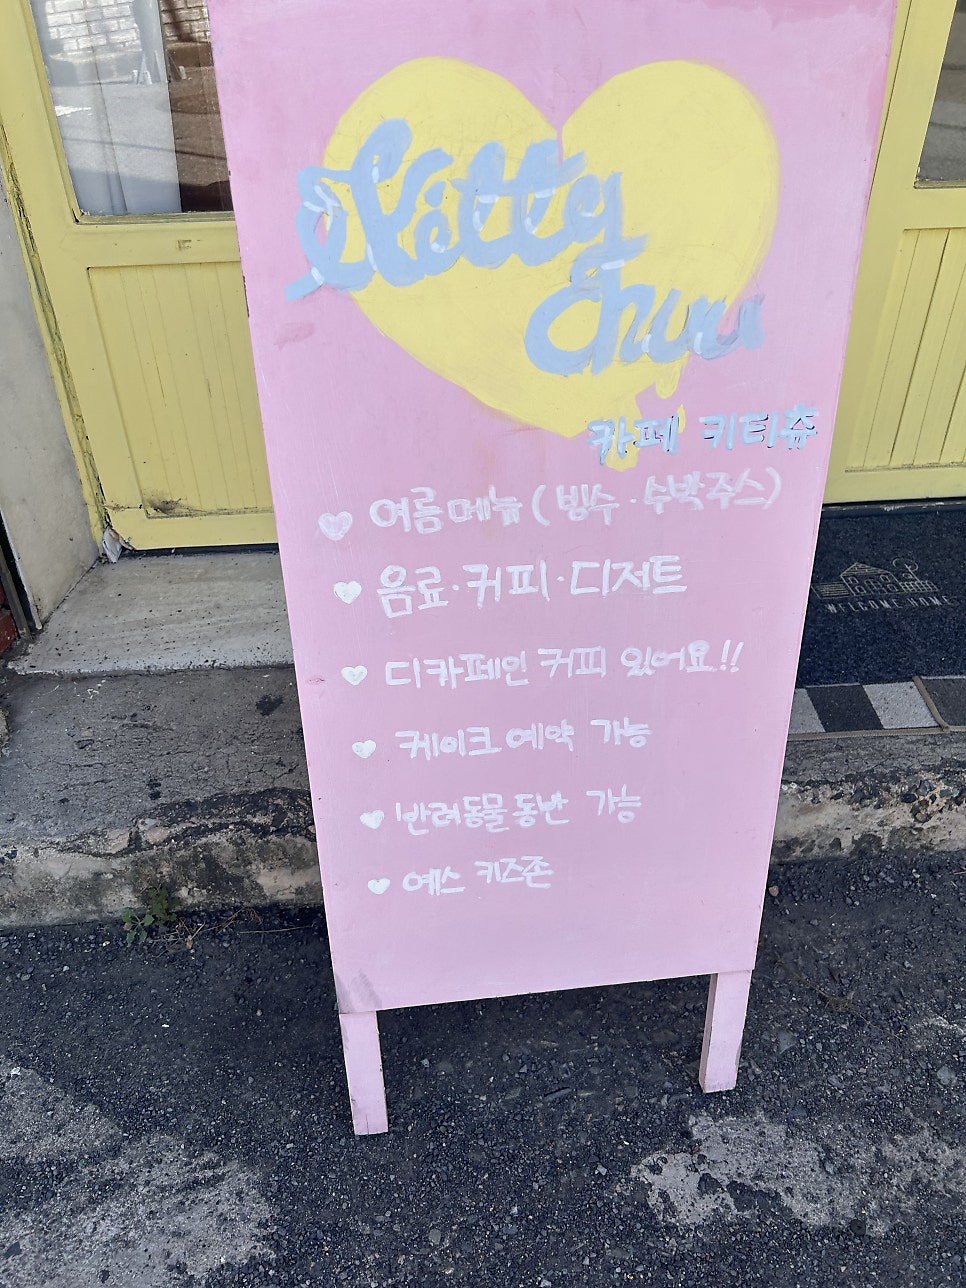 Kitty
Chuu
카페 키티츄
여름메뉴(빙수·수박주스)
음료·커피·디저트
디카페인 커피 있어요!!
케이크 예약 가능
반려동물 동반 가능
예스 키즈존
WELCOME HOME